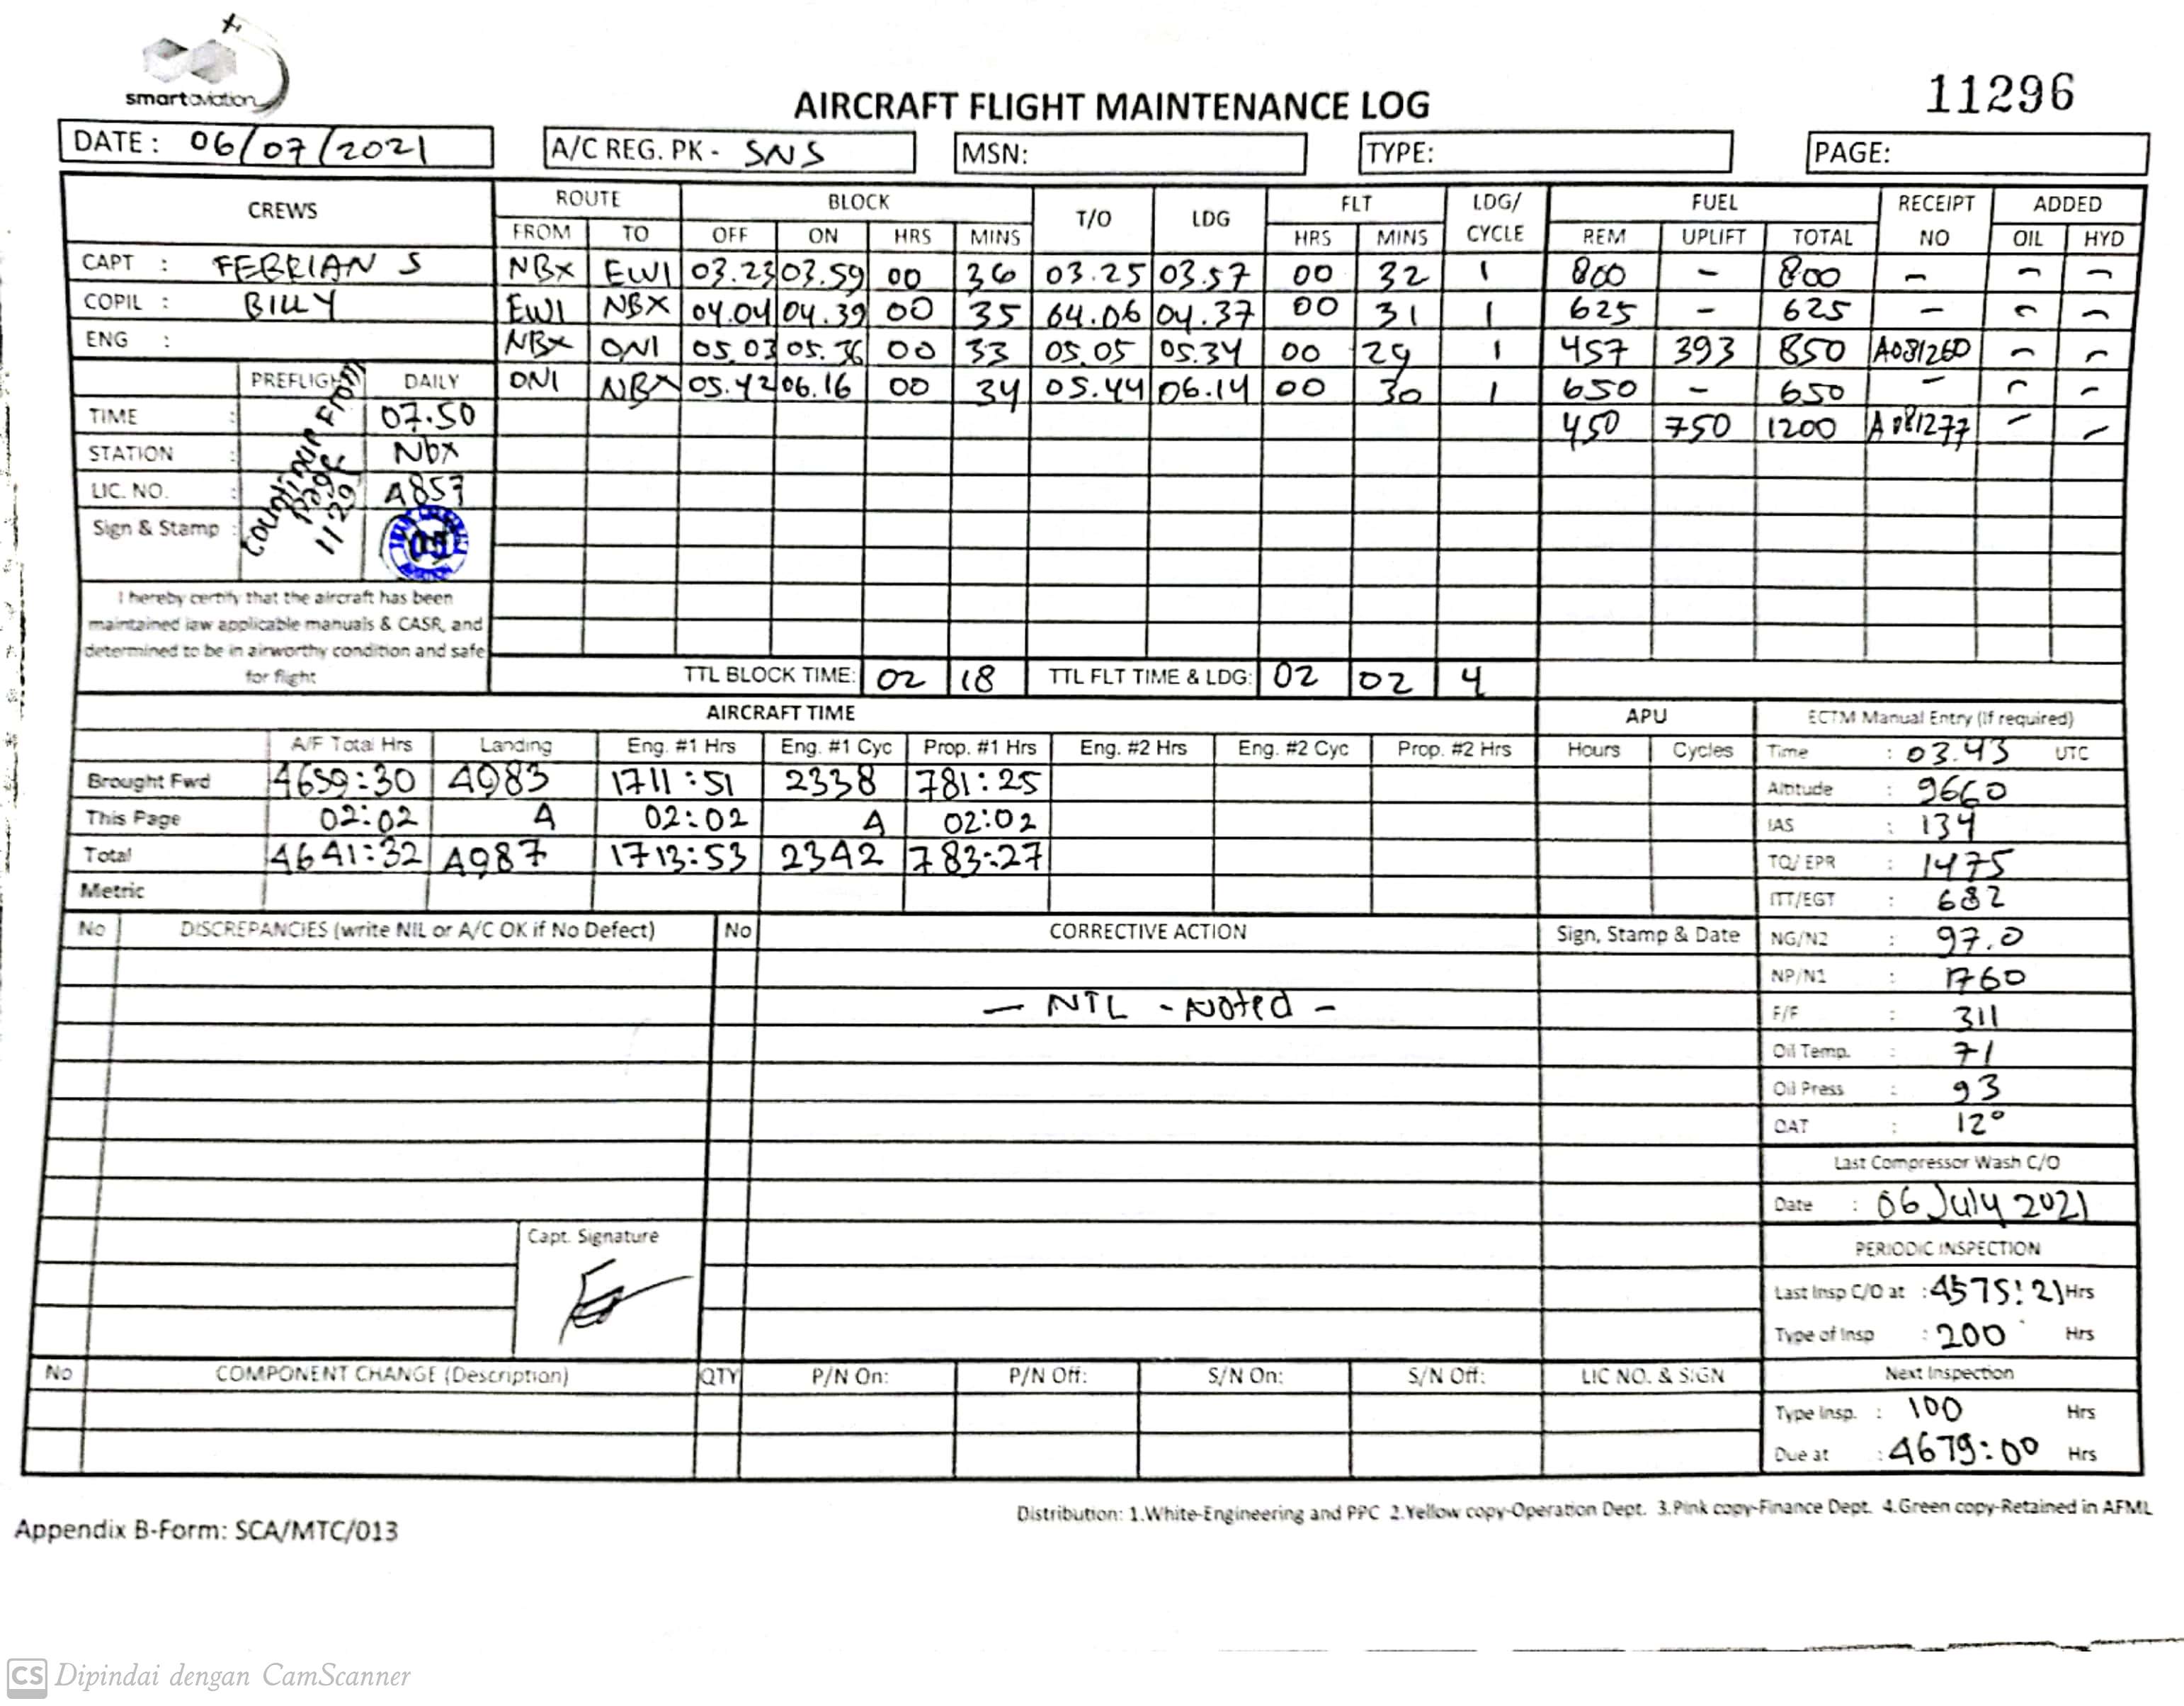 smart aviation
AIRCRAFT FLIGHT MAINTENANCE LOG
11296
DATE : 06/07/2021 A/C REG. PK - SNS MSN: TYPE: PAGE:
CREWS ROUTE BLOCK T/O LDG FLT LDG/ CYCLE FUEL RECEIPT NO ADDED
FROM TO OFF ON HRS MINS HRS MINS REM UPLIFT TOTAL OIL HYD
CAPT : FEBRIAN S NBX EWI 03.23 03.59 00 36 03.25 03.57 00 32 1 800 - 800 - - -
COPIL : BILLY EWI NBX 04.04 04.39 00 35 04.06 04.37 00 31 1 625 - 625 - - -
ENG : NBX ONI 05.03 05.36 00 33 05.05 05.34 00 29 1 457 393 850 A081260 - -
PREFLIGHT DAILY ONI NBX 05.42 06.16 00 34 05.44 06.14 00 30 1 650 - 650 - - -
TIME : 07.50 450 750 1200 A081277 - -
STATION : Nbx
LIC. NO. : A857
Sign & Stamp :
page
I hereby certify that the aircraft has been
maintained iaw applicable manuals & CASR, and
determined to be in airworthy condition and safe
for flight
TTL BLOCK TIME: 02 18 TTL FLT TIME & LDG: 02 02 4
AIRCRAFT TIME APU ECTM Manual Entry (If required)
A/F Total Hrs Landing Eng. #1 Hrs Eng. #1 Cyc Prop. #1 Hrs Eng. #2 Hrs Eng. #2 Cyc Prop. #2 Hrs Hours Cycles Time : 03.43 UTC
Brought Fwd 4639:30 4983 1711:51 2338 781:25 Altitude : 9660
This Page 02:02 4 02:02 4 02:02 IAS : 134
Total 4641:32 4987 1713:53 2342 783:27 TQ/ EPR : 1475
Metric ITT/EGT : 682
No DISCREPANCIES (write NIL or A/C OK if No Defect) No CORRECTIVE ACTION Sign, Stamp & Date NG/N2 : 97.0
NP/N1 : 1760
— NIL - Noted -
F/F : 311
Oil Temp. : 71
Oil Press : 93
OAT : 12°
Last Compressor Wash C/O
Date : 06 July 2021
Capt. Signature
PERIODIC INSPECTION
Last Insp C/O at : 4575:21 Hrs
Type of Insp : 200 Hrs
No COMPONENT CHANGE (Description) QTY P/N On: P/N Off: S/N On: S/N Off: LIC NO. & SIGN Next Inspection
Type Insp. : 100 Hrs
Due at : 4679:00 Hrs
Distribution: 1.White-Engineering and PPC 2.Yellow copy-Operation Dept. 3.Pink copy-Finance Dept. 4.Green copy-Retained in AFML
Appendix B-Form: SCA/MTC/013
CS Dipindai dengan CamScanner